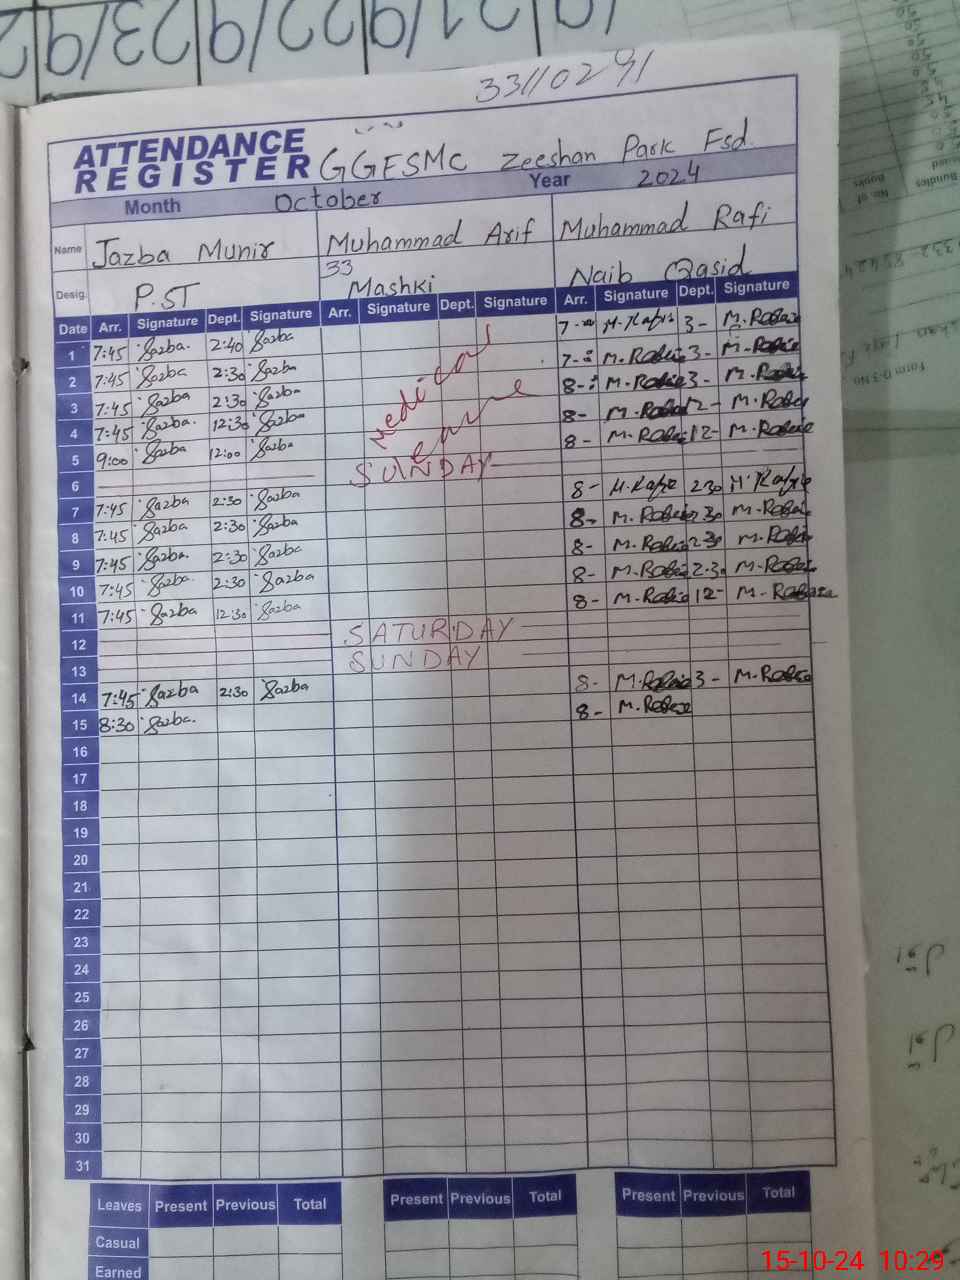 19/21/9/22/9/23/92
33110291
ATTENDANCE REGISTER GGESMC Zeeshan Park Fsd.
Month October Year 2024
Name Jazba Munir Muhammad Arif Muhammad Rafi
Desig. P.ST 33 Mashki Naib Qasid
Date Arr. Signature Dept. Signature Arr. Signature Dept. Signature Arr. Signature Dept. Signature
1 7:45 Jazba. 2:40 Jazba 3- M.Rafie
2 7:45 Jazba 2:30 Jazba M.Rafie 3- M.Rafie
3 7:45 Jazba 2:30 Jazba 8- M.Rafie 3- M.Rafie
4 7:45 Jazba. 12:30 Jazba 8- M.Rafie 12- M.Rafie
5 9:00 Jazba 12:00 Jazba 8- M.Rafie 12- M.Rafie
Medical
earne
6 SUNDAY
7 7:45 Jazba 2:30 Jazba 8- M.Rafie 230 M.Rafie
8 7:45 Jazba 2:30 Jazba 8- M.Rafie 230 M.Rafie
9 7:45 Jazba. 2:30 Jazba 8- M.Rafie 230 M.Rafie
10 7:45 Jazba. 2:30 Jazba 8- M.Rafie 2-30 M.Rafie
11 7:45 Jazba 12:30 Jazba 8- M.Rafie 12- M.Rafie
12 SATURDAY
13 SUNDAY
14 7:45 Jazba 2:30 Jazba 8- M.Rafie 3- M.Rafie
15 8:30 Jazba. 8- M.Rafie
16
17
18
19
20
21
22
23
24
25
26
27
28
29
30
31
Leaves Present Previous Total Present Previous Total Present Previous Total
Casual
Earned
15-10-24 10:29